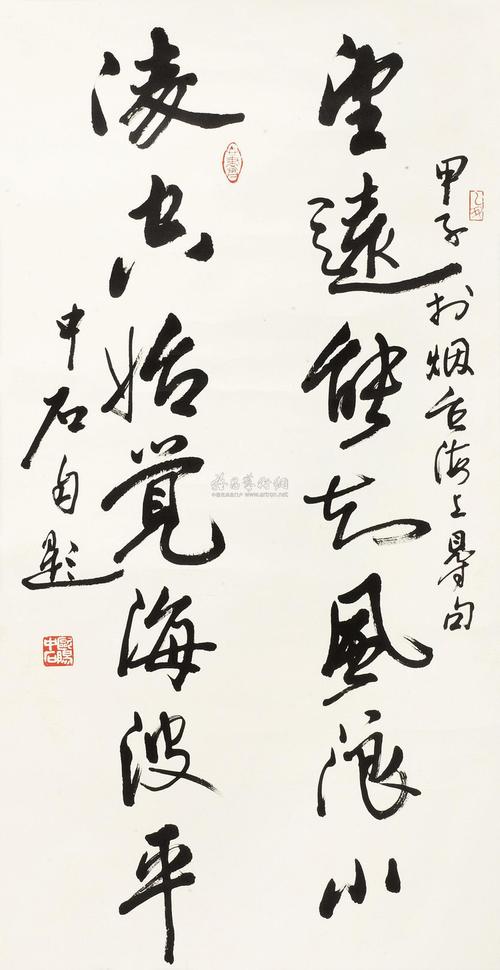 甲子於烟台海上得句
望遠能知風浪小
淩空始覺海波平
中石自題
歐陽中石
雅昌藝術網
www.artron.net